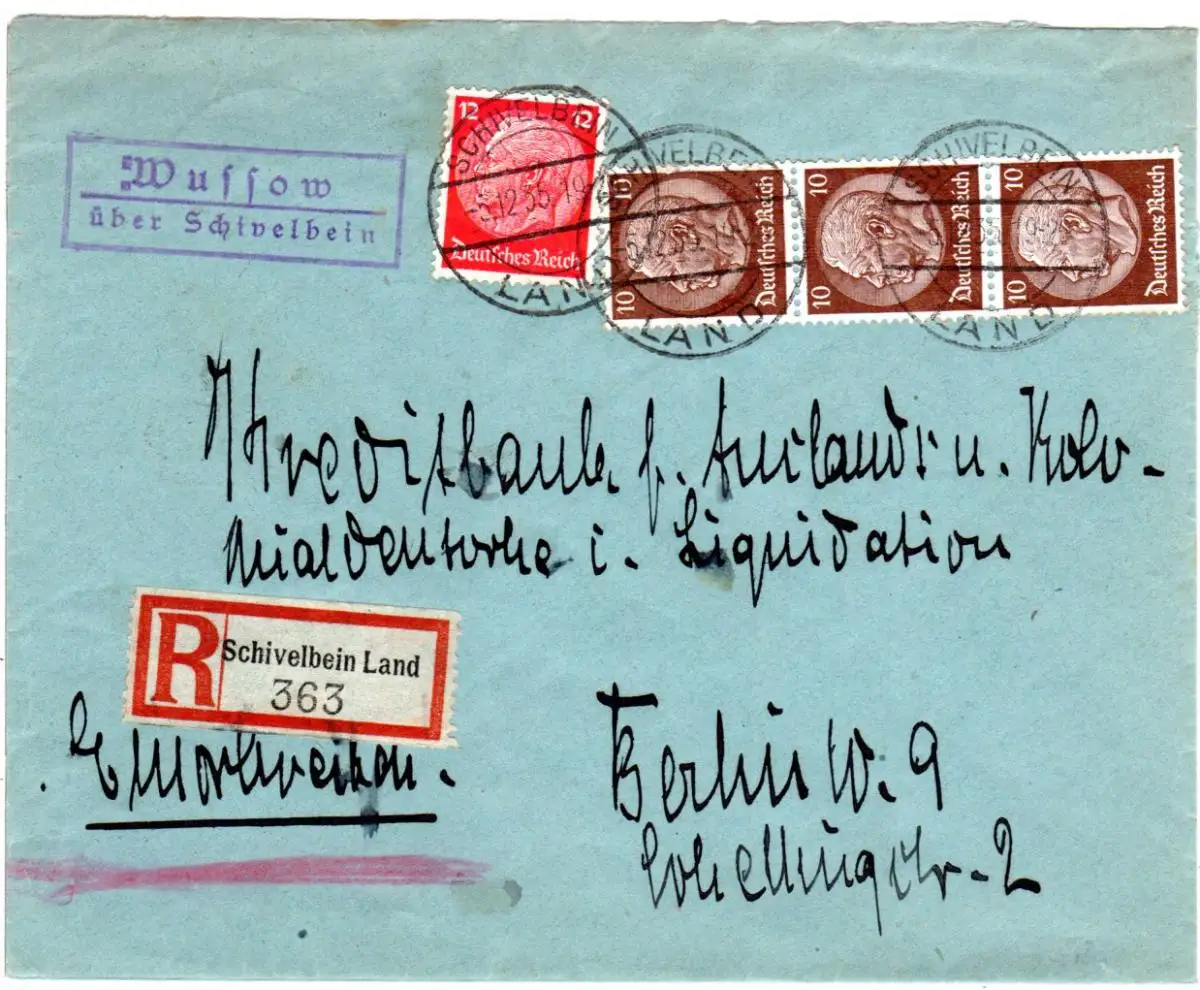 Wussow
über Schivelbein
12 12
Deutsches Reich
10 10
Deutsches Reich
10 10
Deutsches Reich
10 10
Deutsches Reich
SCHIVELBEIN
LAND
SCHIVELBEIN
LAND
SCHIVELBEIN
LAND
Kreditbank f. Auslands u. Kolo-
nialdeutsche i. Liquidation
R Schivelbein Land
363
Einschreiben.
Berlin W. 9
Schellingstr. 2